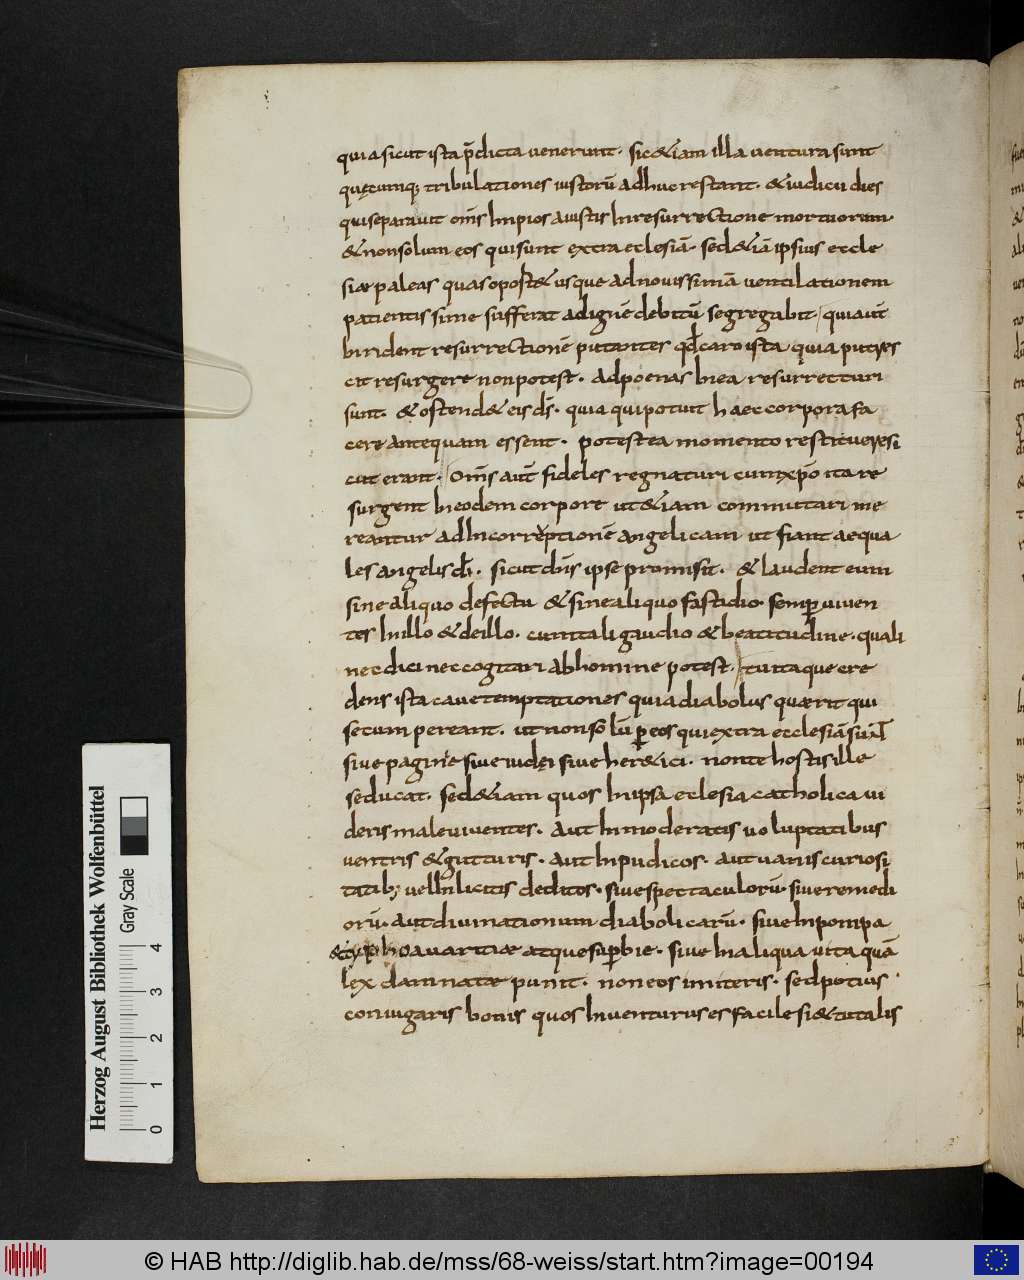 quia sicut ista p̄dicta venerunt. sic & iam illa ventura sunt
quęcumq; tribulationes iustorū adhuc restant. & iudicii dies
qui separavit om̄s inpios a iustis in resurrectione mortuorum.
& non solum eos qui sunt extra eclesiā. sed & iā ipsius eccle
siae paleas quas oport& usque ad novissimā ventilationem
patientissime sufferat ad ignē debitū segregabit, qui aut̄
birident resurrectionē putantes qd̄ caro ista quia putres
cit resurgere non potest. ad poenas in ea resurrecturi
sunt. & ostend& eis ds̄. quia qui potuit haec corpora fa
cere antequam essent. potest ea momento restituere si
cut erant. Om̄s aut̄ fideles regnaturi cum xp̄o ita re
surgent in eodem corpore ut & iam commutari me
reantur ad incorruptionē angelicam ut fiant aequa
les angelis dī. sicut dn̄s ipse promisit. & laudent eum
sine aliquo defectu & sine aliquo fastidio. semp̄ viven
tes in illo & de illo. cum tali gaudio & beatitudine. quali
nec dici nec cogitari ab homine potest. tu itaque cre
dens ista cave temptationes quia diabolus quaerit qui
secum pereant. ut non solū p̄ eos qui extra ecclesiā sunt
sive pagine sive iudęi sive her&ici. non te hostis ille
seducat. sed & iam quos in ipsa eclesia catholica vi
deris male viventes. aut inmoderatis voluptatibus
ventris & gutturis. aut inpudicos. aut vanis curiosi
tatib; vel inlicitis deditos. sive spectaculorū. sive remedi
orū. aut divinationum diabolicarū. sive in pompa
& typho avaritiae atque sup̄bie. sive in aliqua vita quā
lex damnat & punit. non eos imiteris. sed potius
coniugaris bonis quos inventurus es facile si & tu talis
Herzog August Bibliothek Wolfenbüttel
Gray Scale
0 1 2 3 4
© HAB http://diglib.hab.de/mss/68-weiss/start.htm?image=00194